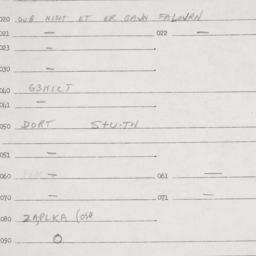 020 OUB NIGHT ET ER GAWN FALOWRN
021 — 022 —
023 —
030 —
040 G3NILT
041 —
050 DORT S+U-TN
051 —
060 — 061 —
070 — 071 —
080 ZAPLKA (OSH
090 O